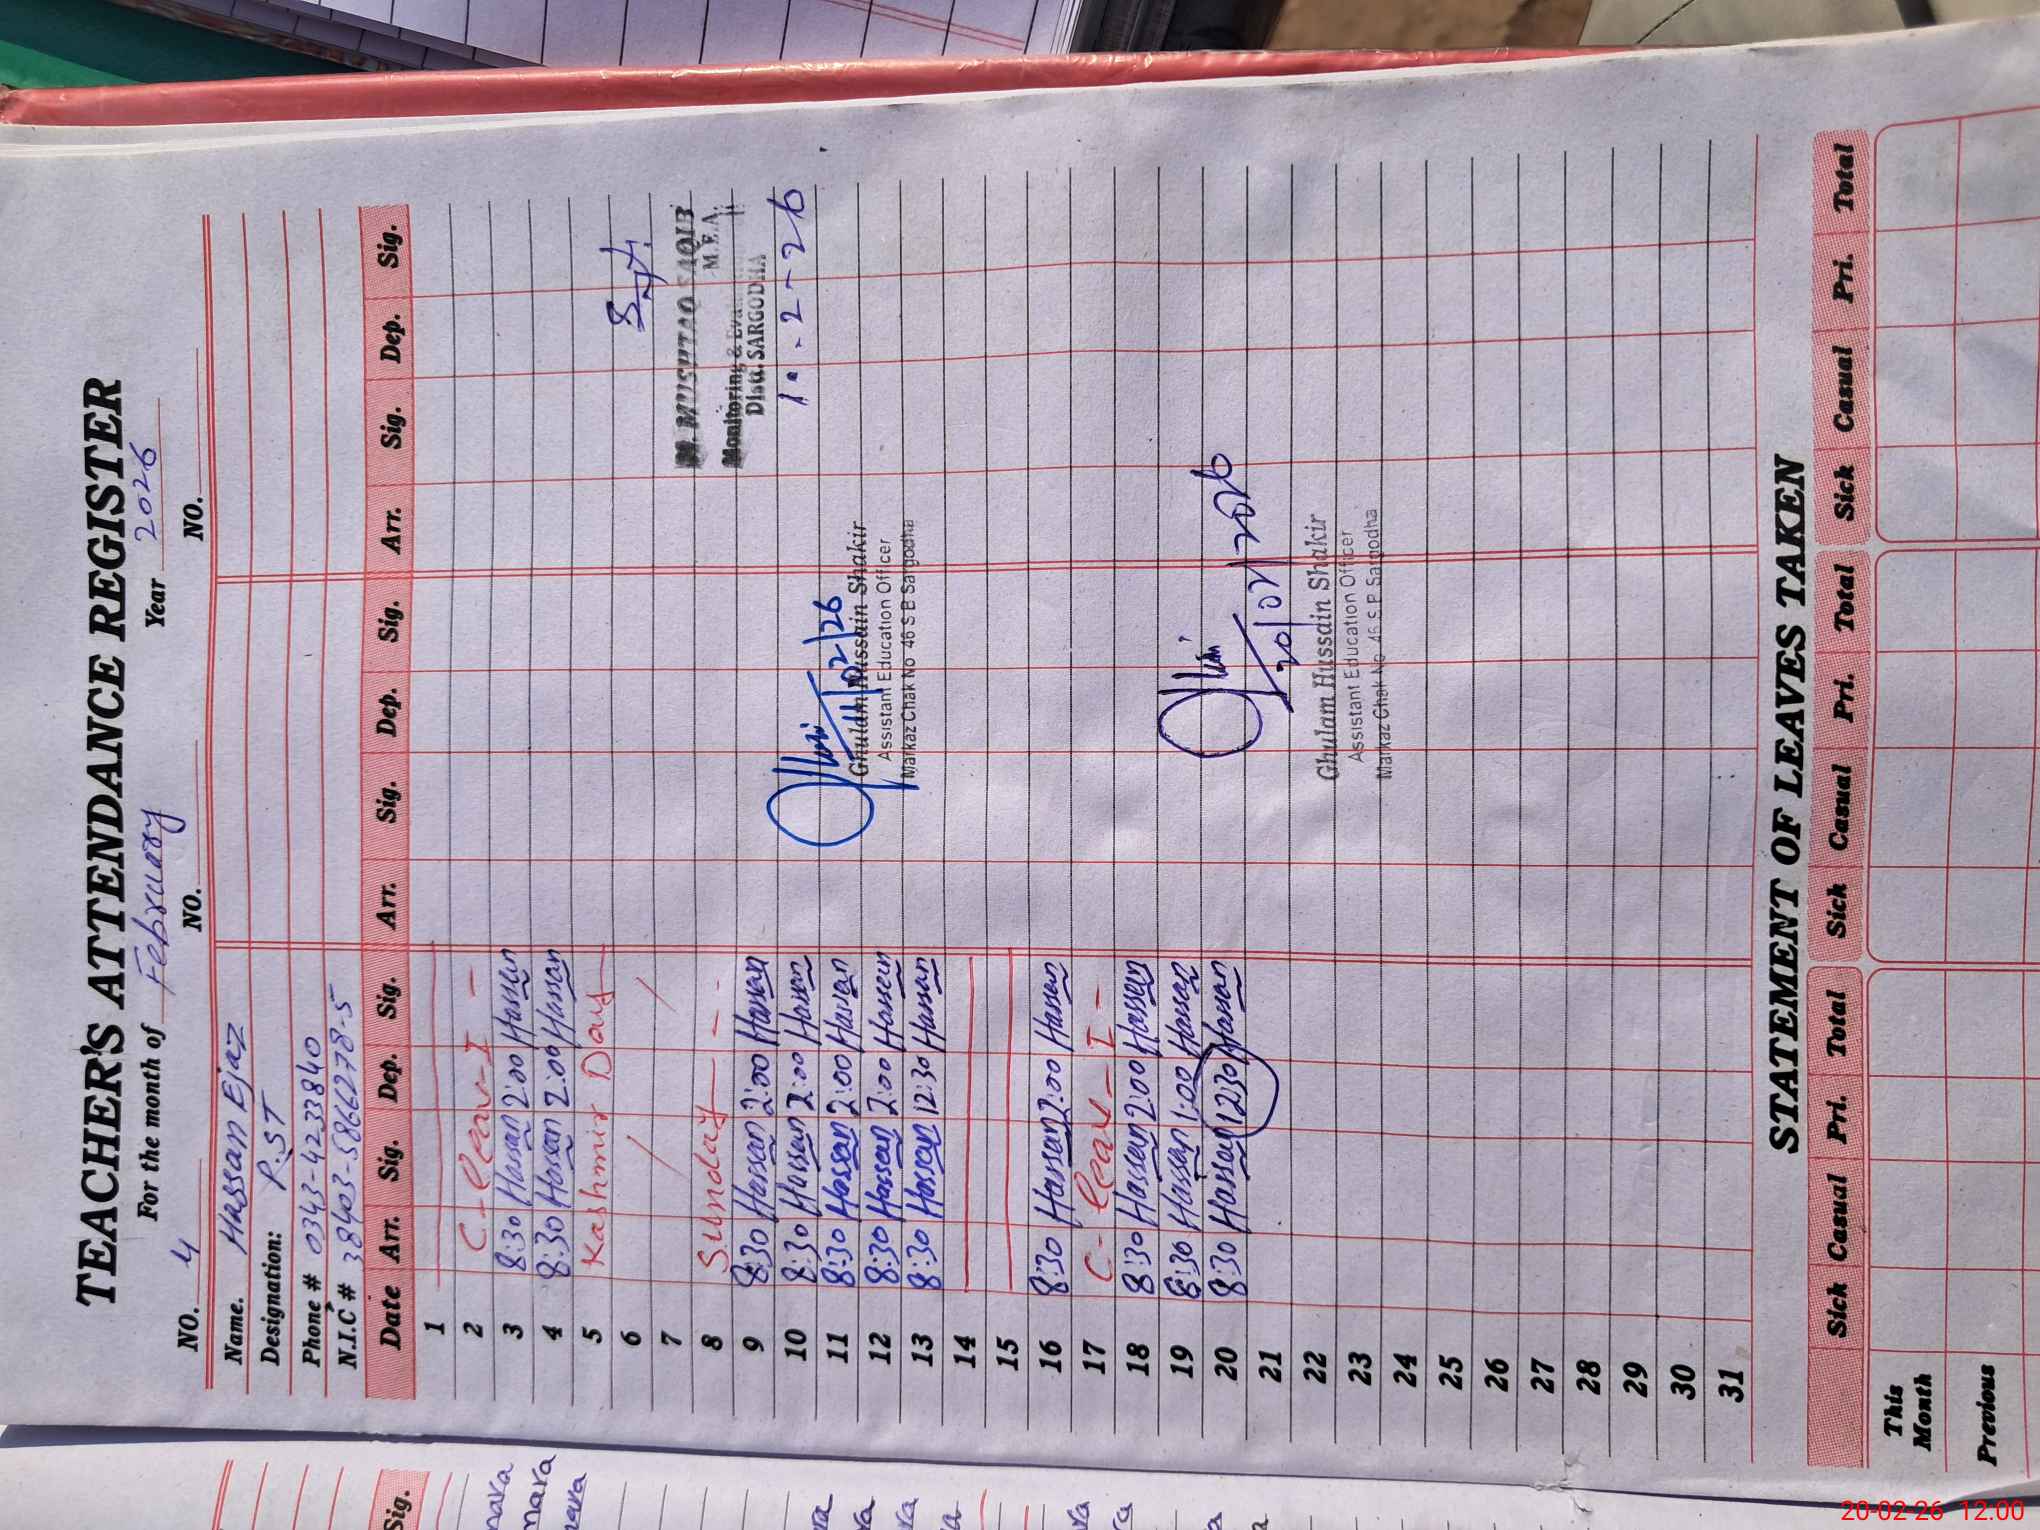 TEACHER'S ATTENDANCE REGISTER
For the month of February Year 2026
NO. 4 NO. NO.
Name. Hassan Ejaz
Designation: P.ST
Phone # 0343-4233840
N.I.C # 38403-5866278-5
Date Arr. Sig. Dep. Sig. Arr. Sig. Dep. Sig. Arr. Sig. Dep. Sig.
1
2 C-leav-I -
3 8:30 Hassan 2:00 Hassan
4 8:30 Hassan 2:00 Hassan
5 Kashmir Day
6 /
7 /
8 Sunday - -
9 8:30 Hassan 2:00 Hassan
10 8:30 Hassan 2:00 Hassan
11 8:30 Hassan 2:00 Hassan
12 8:30 Hassan 2:00 Hassan
13 8:30 Hassan 12:30 Hassan
14
15
16 8:30 Hassan 2:00 Hassan
17 C-leav-I -
18 8:30 Hassan 2:00 Hassan
19 8:30 Hassan 1:00 Hassan
20 8:30 Hassan 1230 Hassan
21
22
23
24
25
26
27
28
29
30
31
M. MUSHTAQ SAQIB
M.E.A.
Monitoring & Eva
Distt. SARGODHA
10-2-26
02/26
Ghulam Hussain Shakir
Assistant Education Officer
Markaz Chak No 46 S B Sargodha
20/02/2026
Ghulam Hussain Shakir
Assistant Education Officer
Markaz Chak No 46 S B Sargodha
STATEMENT OF LEAVES TAKEN
Sick Casual Pri. Total Sick Casual Pri. Total Sick Casual Pri. Total
This Month
Previous
Sig.
20-02-26 12:00